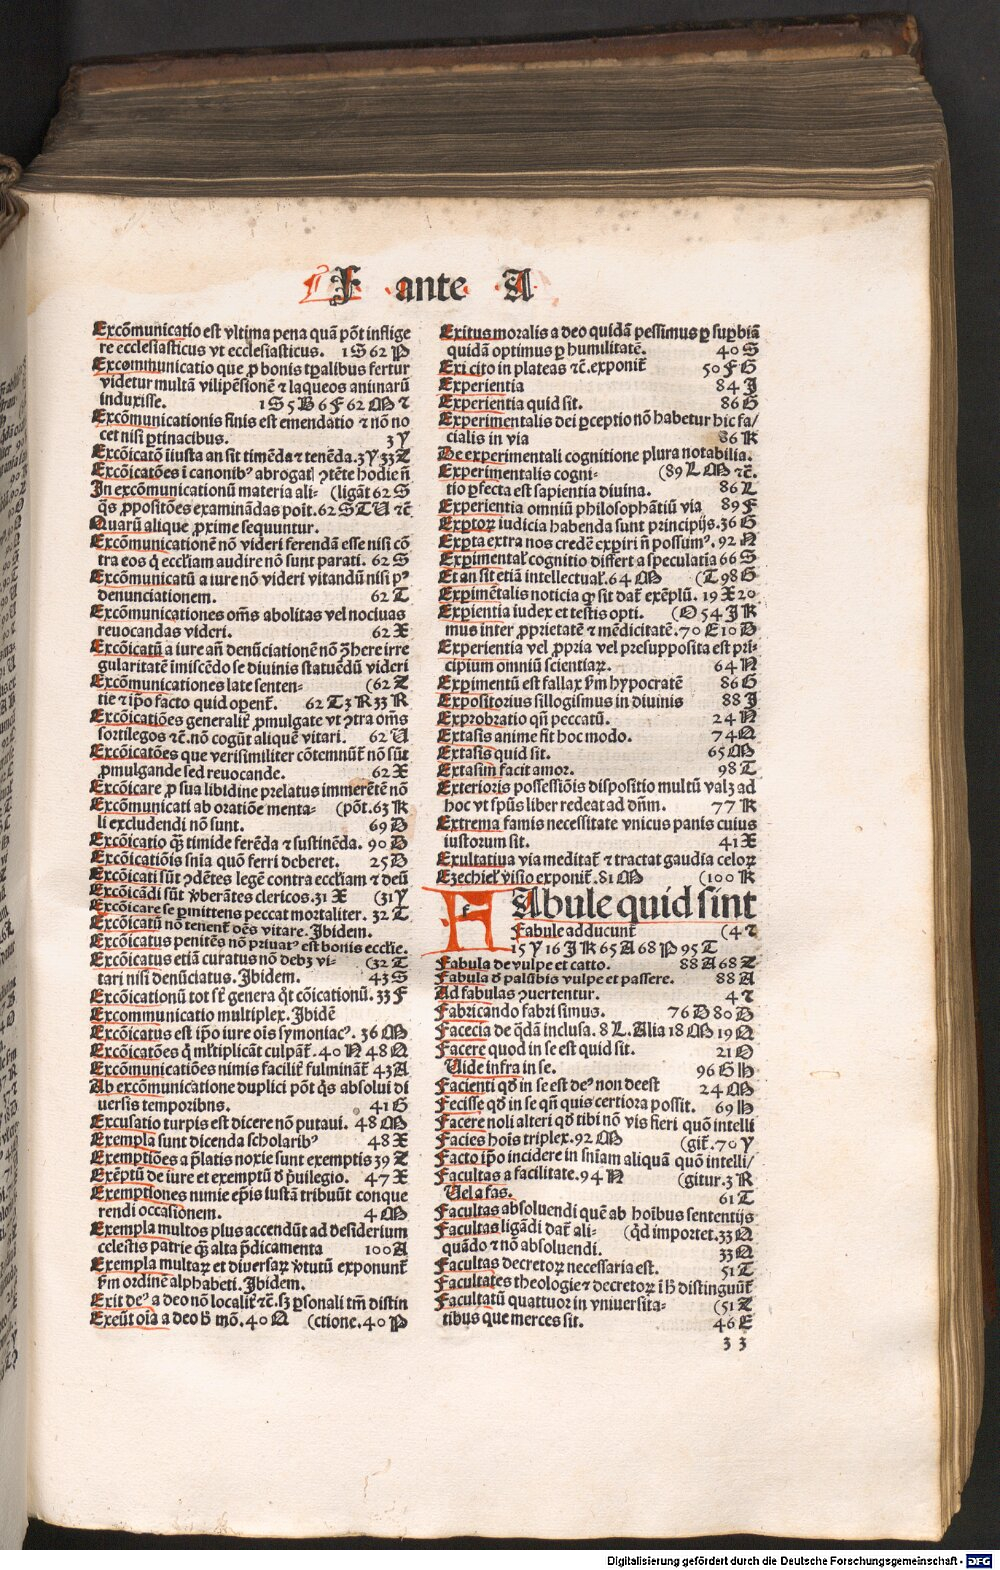 F ante A
Excōmunicatio est vltima pena quā pōt inflige
re ecclesiasticus vt ecclesiasticus. 1 S 62 P
Excommunicatio que ꝓ bonis tꝑalibus fertur
videtur multā vilipēsionē ⁊ laqueos animarū
induxisse. 1 S 5 B 6 F 62 M ⁊
Excōmunicationis finis est emendatio ⁊ nō no
cet nisi ꝑtinacibus. 3 Y
Excōicatō iiusta an sit timēda ⁊ tenēda. 3 Y 33 Z
Excōicatōes ī canonibꝰ abrogat ꝯtēte hodie n̄
In excōmunicationū materia ali- (ligāt 62 S
q̄s ꝓpositōes examinādas poīt. 62 S T U ⁊c̄
Quarū alique ꝓxime sequuntur.
Excōmunicationē nō videri ferendā esse nisi cō
tra eos q̄ eccl̄iam audire nō sunt parati. 62 S
Excōmunicatū a iure nō videri vitandū nisi pꝰ
denunciationem. 62 T
Excōmunicationes om̄s abolitas vel nociuas
reuocandas videri. 62 X
Excōicatū a iure an̄ denūciationē nō ꝯ̄here irre
gularitatē imiscēdo se diuinis statuēdū videri
Excōmunicationes late senten- (62 Z
tie ⁊ ip̄o facto quid operit̄. 62 T 3 R 33 R
Excōicatiōes generalit̄ ꝓmulgate vt ꝯtra om̄s
sortilegos ⁊c̄. nō cogūt aliquē vitari. 62 U
Excōicatōes que verisimiliter cōtemnūt̄ nō sūt
ꝓmulgande sed reuocande. 62 X
Excōicare ꝓ sua libidine prelatus immerētē nō
Excōmunicati ab oratiōe menta- (pōt. 63 K
li excludendi nō sunt. 69 D
Excōicatio q̄ꝫ timide ferēda ⁊ sustinēda. 90 D
Excōicatiōis sn̄ia quō ferri deberet. 25 D
Excōicati sūt ꝯdētes legē contra eccl̄iam ⁊ deū
Excōicādi sūt v̄berātes clericos. 31 X (31 Y
Excōicare se ꝑmittens peccat mortaliter. 32 T
Excōicatū nō tenent̄ oēs vitare. Ibidem.
Excōicatus penitēs nō priuatꝰ est bonis eccl̄ie.
Excōicatus etiā curatus nō debꝫ vi- (32 T
tari nisi denūciatus. Ibidem. 43 S
Excōicationū tot sūt genera q̄t cōicationū. 33 F
Excommunicatio multiplex. Ibidē
Excōicatus est ip̄o iure ois symoniacꝰ. 36 M
Excōicatōes q̄ ml̄tiplicāt culpāt̄. 40 N 48 Q
Excōmunicatiōes nimis facilit̄ fulminat̄ 43 A
Ab excōmunicatione duplici pōt q̄s absolui di
uersis temporibus. 41 G
Excusatio turpis est dicere nō putaui. 48 M
Exempla sunt dicenda scholaribꝰ 48 X
Exemptiōes a p̄latis noxie sunt exemptis 39 Z
Exēptū de iure et exemptū d̄ p̄uilegio. 47 X
Exemptiones nimie ep̄is iustā tribuūt conque
rendi occasionem. 4 M
Exempla multos plus accendūt ad desiderium
celestis patrie q̄ꝫ alta p̄dicamenta 100 A
Exempla multaꝝ et diuersaꝝ v̄tutū exponunt̄
ẜm ordinē alphabeti. Ibidem.
Exit deꝰ a deo nō localit̄ ⁊c̄. sꝫ ꝑsonali tm̄ distin
Exeūt oīa a deo h̄ mō. 40 Q (ctione. 40 P
Exitus moralis a deo quidā pessimus ꝑ suꝑbiā
quidā optimus ꝑ humilitatē. 40 S
Exi cito in plateas ⁊c̄. exponit̄ 50 F G
Experientia 84 J
Experientia quid sit. 86 G
Experimentalis dei ꝑceptio nō habetur hic fa/
cialis in via 86 K
De experimentali cognitione plura notabilia.
Experimentalis cogni- (89 L M ⁊c̄.
tio ꝑfecta est sapientia diuina. 86 L
Experientia omniū philosophātiū via 89 F
Exꝑtoꝝ iudicia habenda sunt principijs. 36 G
Exꝑta extra nos credē exꝑiri n̄ possumꝰ. 92 N
Exꝑimental̄ cognitio differt a speculatīa 66 S
Et an sit etiā intellectual̄. 64 M (T 98 G
Exꝑimētalis noticia qꝫ sit dat̄ exēplū. 19 X 20
Exꝑientia iudex et testis opti. (O 54 J K
mus inter ꝓprietatē ⁊ mēdicitatē. 70 E 10 D
Experientia vel ꝓpria vel presupposita est pri-
cipium omniū scientiaꝝ. 64 N
Exꝑimentū est fallax ẜm hypocratē 86 G
Expositorius sillogismus in diuinis 88 J
Exprobratio qn̄ peccatū. 24 N
Extasis anime fit hoc modo. 74 Q
Extasis quid sit. 65 M
Extasim facit amor. 98 T
Exterioris possessiōis dispositio multū valꝫ ad
hoc vt spūs liber redeat ad dn̄m. 77 K
Extrema famis necessitate vnicus panis cuius
iustorum sit. 41 X
Exultatiua via meditat̄ ⁊ tractat gaudia celoꝝ
Ezechiel̄ visio exponit̄. 81 M (100 K
FAbule quid sint
Fabule adducunt̄ (4 ⁊
15 Y 16 J K 65 A 68 P 95 T
Fabula de vulpe et catto. 88 A 68 Z
Fabula d̄ palūbis vulpe et passere. 88 A
Ad fabulas ꝯuertentur. 4 ⁊
Fabricando fabri simus. 76 D 80 D
Facecia de q̄dā inclusa. 8 L. Alia 18 M 19 Q
Facere quod in se est quid sit. 21 O
Uide infra in se. 96 G H
Facienti qd̄ in se est deꝰ non deest 24 M
Fecisse qd̄ in se qn̄ quis certiora possit. 69 H
Facere noli alteri qd̄ tibi nō vis fieri quō intelli
Facies hoīs triplex. 92 M (git̄. 70 Y
Facto ip̄o incidere in sn̄iam aliquā quō intelli/
Facultas a facilitate. 94 N (gitur. 3 R
Uel a fas. 61 T
Facultas absoluendi quē ab hoībus sententijs
Facultas ligādi dat̄ ali- (q̄d importet. 33 Q
quādo ⁊ nō absoluendi. 33 Q
Facultas decretoꝝ necessaria est. 51 T
Facultates theologie ⁊ decretoꝝ ī h̄ distinguūt̄
Facultatū quattuor in vniuersita- (51 Z
tibus que merces sit. 46 E
33
Digitalisierung gefördert durch die Deutsche Forschungsgemeinschaft - DFG